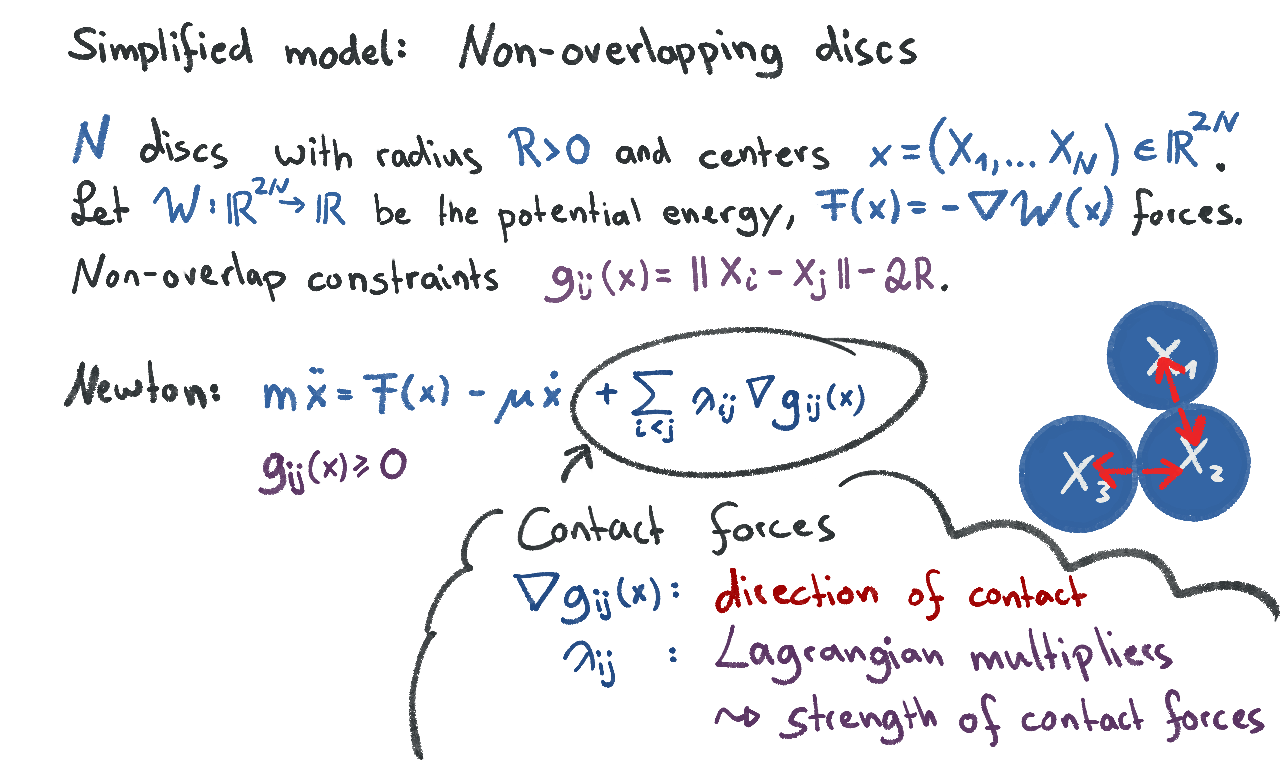 Simplified model: Non-overlapping discs
N discs with radius R>0 and centers x = (X₁,... X_N) ∈ ℝ²ᴺ.
Let W: ℝ²ᴺ → ℝ be the potential energy, F(x) = -∇W(x) forces.
Non-overlap constraints g_ij(x) = ‖X_i - X_j‖ - 2R.
Newton: mẍ = F(x) - μẋ + ∑_{i<j} λ_ij ∇g_ij(x)
g_ij(x) ≥ 0
X₁
X₃ X₂
Contact forces
∇g_ij(x): direction of contact
λ_ij : Lagrangian multipliers
⇝ strength of contact forces